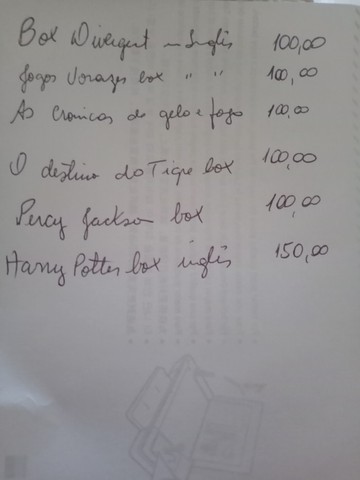 Box Divergent - Inglês 100,00
Jogos Vorazes box " " 100,00
As Cronicas do gelo e fogo 100,00
O destino do Tigre box 100,00
Percy Jackson box 100,00
Harry Potter box inglês 150,00